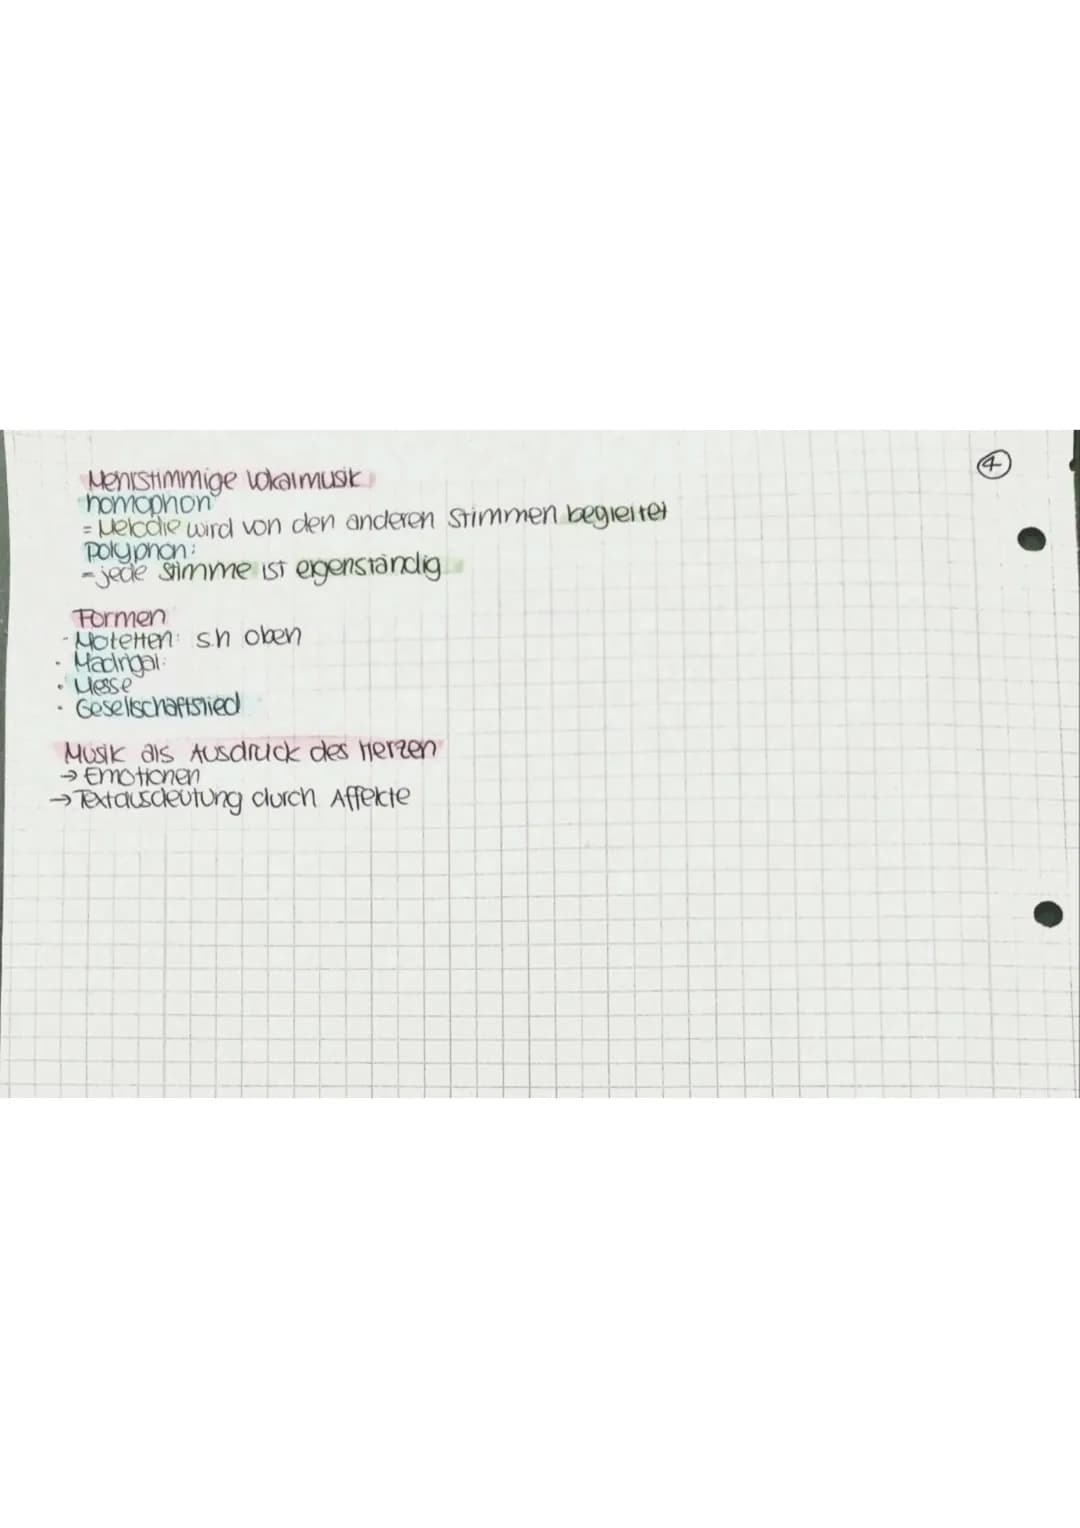 Mehrstimmige Vokalmusik
④
homophon
= Melodie wird von den anderen Stimmen begleitet
Polyphon:
= jede Stimme ist eigenständig
Formen
- Motetten: s.h oben
• Madrigal:
• Messe
• Gesellschaftslied
Musik als Ausdruck des Herzen
→ Emotionen
→ Textausdeutung durch Affekte